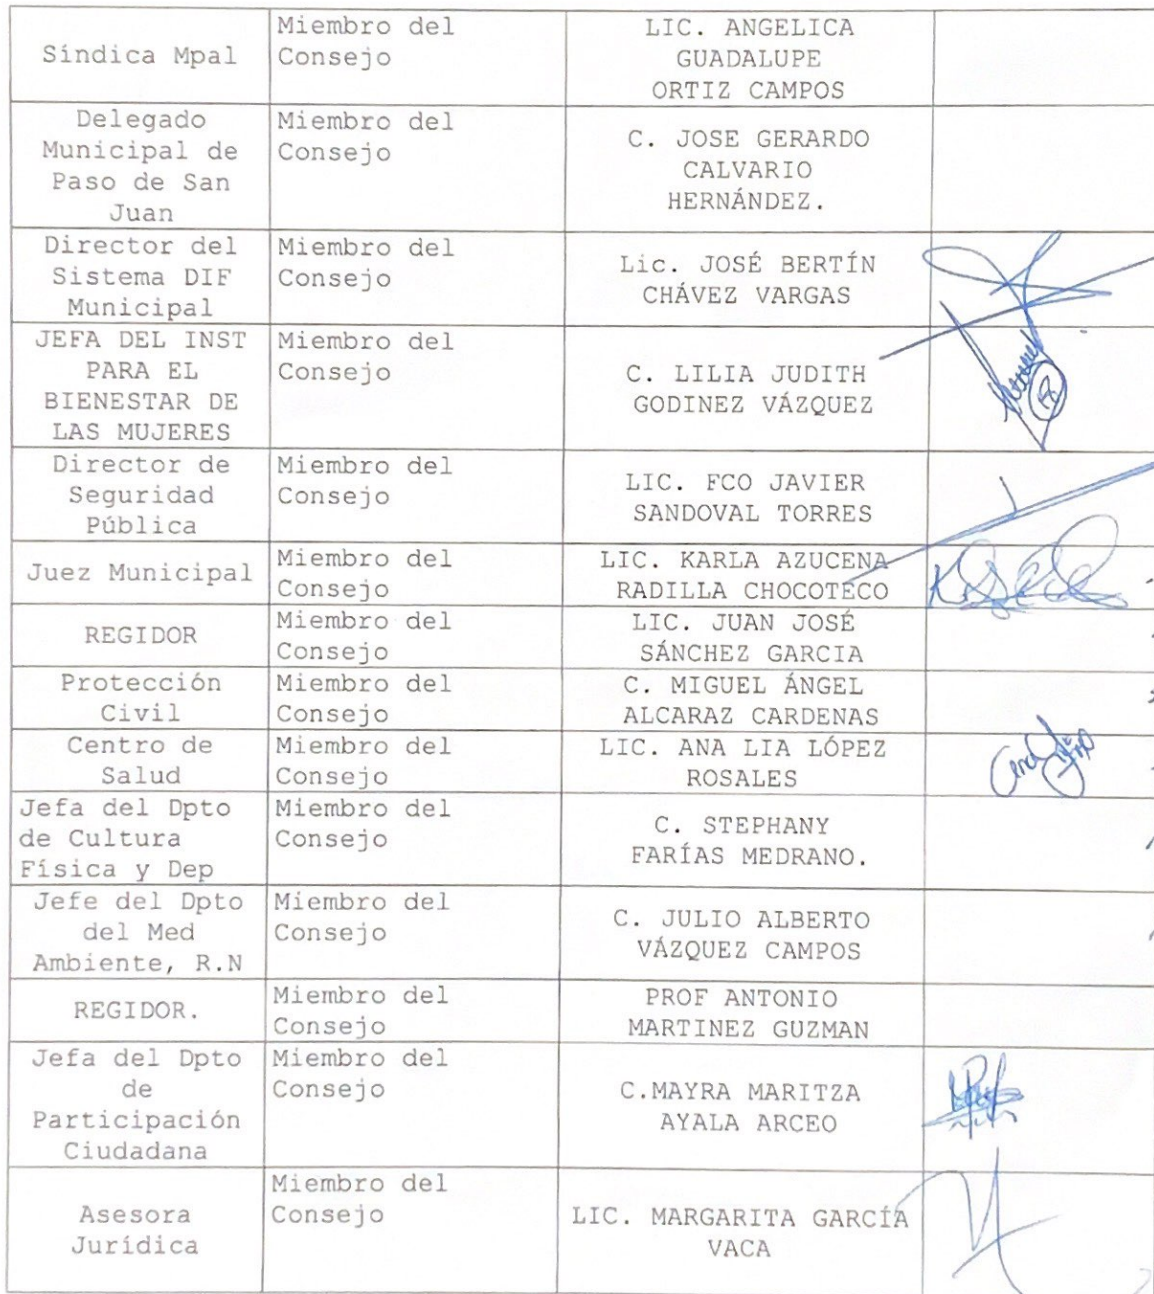 Síndica Mpal
Miembro del
Consejo
LIC. ANGELICA
GUADALUPE
ORTIZ CAMPOS
Delegado
Municipal de
Paso de San
Juan
Miembro del
Consejo
C. JOSE GERARDO
CALVARIO
HERNÁNDEZ.
Director del
Sistema DIF
Municipal
Miembro del
Consejo
Lic. JOSÉ BERTÍN
CHÁVEZ VARGAS
JEFA DEL INST
PARA EL
BIENESTAR DE
LAS MUJERES
Miembro del
Consejo
C. LILIA JUDITH
GODINEZ VÁZQUEZ
Director de
Seguridad
Pública
Miembro del
Consejo
LIC. FCO JAVIER
SANDOVAL TORRES
Juez Municipal
Miembro del
Consejo
LIC. KARLA AZUCENA
RADILLA CHOCOTECO
REGIDOR
Miembro del
Consejo
LIC. JUAN JOSÉ
SÁNCHEZ GARCIA
Protección
Civil
Miembro del
Consejo
C. MIGUEL ÁNGEL
ALCARAZ CARDENAS
Centro de
Salud
Miembro del
Consejo
LIC. ANA LIA LÓPEZ
ROSALES
Jefa del Dpto
de Cultura
Física y Dep
Miembro del
Consejo
C. STEPHANY
FARÍAS MEDRANO.
Jefe del Dpto
del Med
Ambiente, R.N
Miembro del
Consejo
C. JULIO ALBERTO
VÁZQUEZ CAMPOS
REGIDOR.
Miembro del
Consejo
PROF ANTONIO
MARTINEZ GUZMAN
Jefa del Dpto
de
Participación
Ciudadana
Miembro del
Consejo
C.MAYRA MARITZA
AYALA ARCEO
Asesora
Jurídica
Miembro del
Consejo
LIC. MARGARITA GARCÍA
VACA